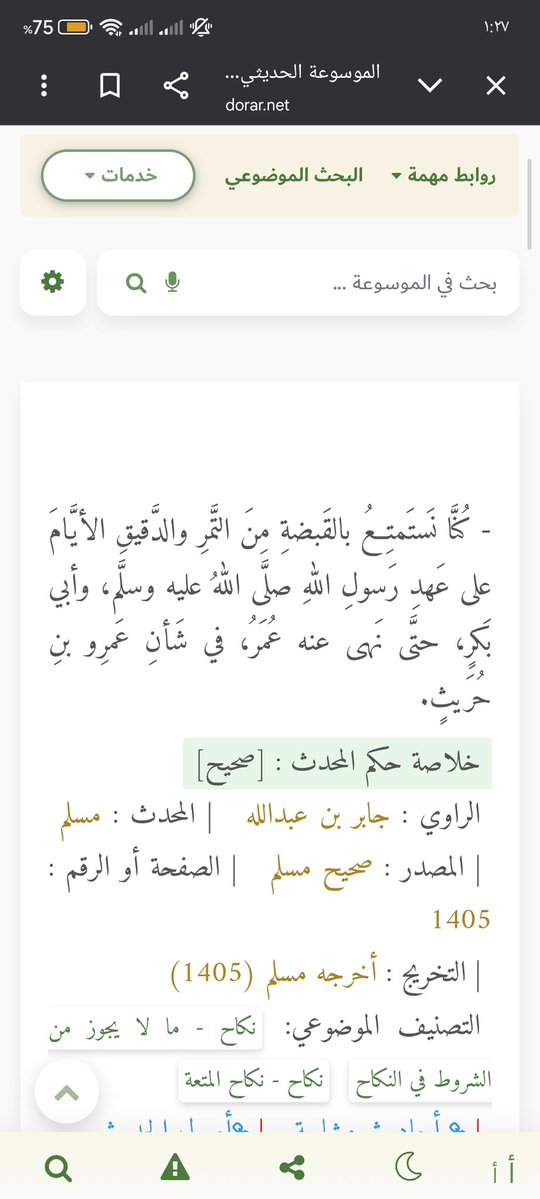 %75
١:٢٧
الموسوعة الحديثي...
dorar.net
روابط مهمة
البحث الموضوعي
خدمات
بحث في الموسوعة ...
- كُنَّا نَستَمتِعُ بالقَبضةِ مِنَ التَّمرِ والدَّقيقِ الأيَّامَ
على عَهدِ رَسولِ اللهِ صلَّى اللهُ عليه وسلَّم، وأبي
بَكرٍ، حتَّى نَهى عنه عُمَرُ، في شَأنِ عَمرِو بنِ
حُرَيثٍ.
خلاصة حكم المحدث : [صحيح]
الراوي : جابر بن عبدالله | المحدث : مسلم
| المصدر : صحيح مسلم | الصفحة أو الرقم :
1405
| التخريج : أخرجه مسلم (1405)
التصنيف الموضوعي: نكاح - ما لا يجوز من
الشروط في النكاح نكاح - نكاح المتعة
أ أ